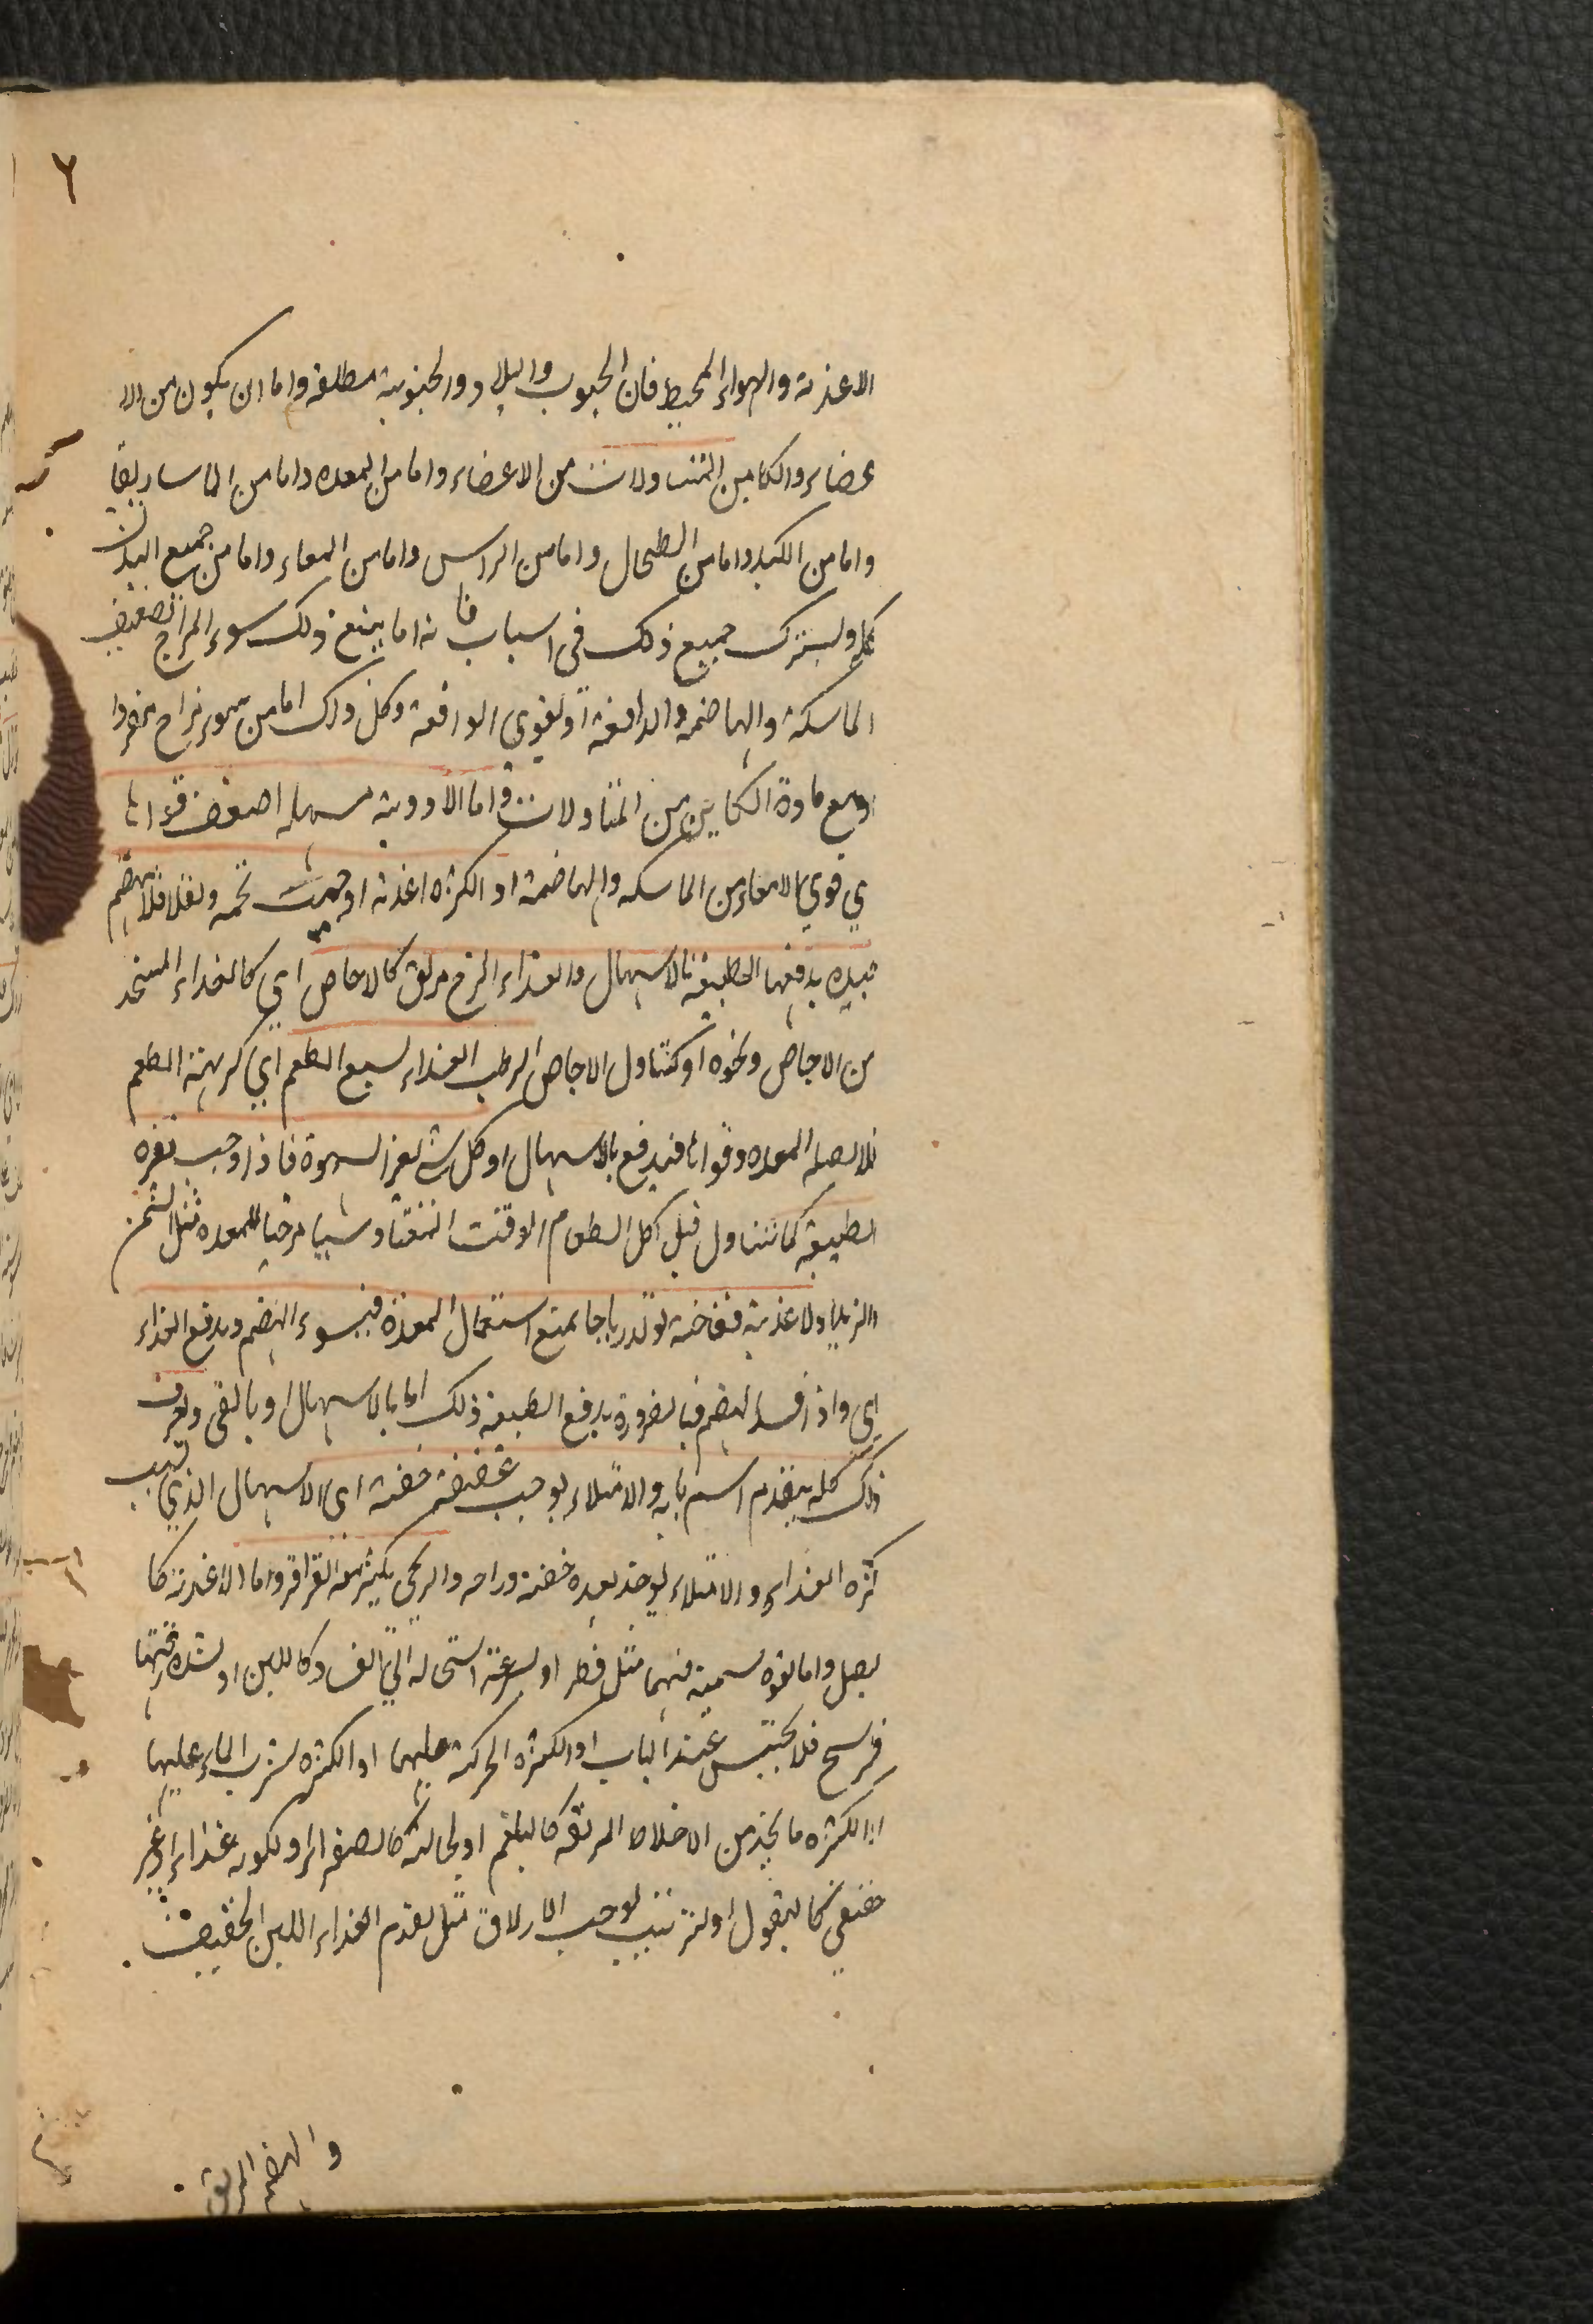 ٦
الاغذية والهواء المحيط فان الجيوب والبلاد والجنوبية مطلقة واما ان يكون من الا
عضاء والكاين المتناولات من الاعضاء واما من المعده واما من الماساريقا
واما من الكبد واما من الطحال واما من الراس واما من المعاء واما من جميع البدن
كله ويشترك جميع ذلك فى اسباب فانه اما يتبع ذلك سوء المزاج تضعيف
الماسكة والهاضمه والدافعة او لقوى الدافعة وكل ذلك اما من سوء مزاج مفردا
او مع مادة الكاين من المتناولات واما الادوية مسهله اضعف قواها
ي قوي الامعاء من الماسكه والهاضمة او الكثره اغذية اوجبت تخمه وثقلا فلا تهضم
جيده يدفعها الطبيعة بالاسهال والغذاء الزج مزلق كالاجاص اي كالغذاء المتخذ
من الاجاص ونحوه او كتناول الاجاص الرطب الغذاء لسبع الطعم اي كريهة الطعم
فلا يصله المعده وقواها فيدفع بالاسهال او كل شي لغز الشهوة فاذا وجب نفره
الطبيعة كما تتناول قبل اكل الطعام الوقت او شيا مرخيا للمعده مثل السمن
والزيد او لاغذية نفاخة تولد رياحا يمنع استعمال المعدة فيسوء الهضم ويدفع الغذاء
اى واذا فسد الهضم فبالضرورة يدفع الطبيعة ذلك اما بالاسهال او بالقى ويعرف
ذلك كله بتقدم اسبابه والامتلاء يوجب خفة اى الاسهال الذي سبب
كثره الغذاء والامتلاء يوجد بعده خفة وراحه والريحي يكثر معه القراقر واما الاغذية كا
لبصل واما لقوه سمية فيها مثل فطر او لسرعة استحاله الي الفساد كاللبن او لشده
فلا يحتبس عند الباب او الكثره الحركة عليها او الكثره شرب الماء عليها
او الكثره ما يجذ من الاخلاط المزلقه كالبلغم او كالصفراء او لكونه غذاء غير
حقيقي كالبقول او لترتيب يوجب الازلاق مثل تقدم الغذاء اللين الخفيف
والهضم المزلق